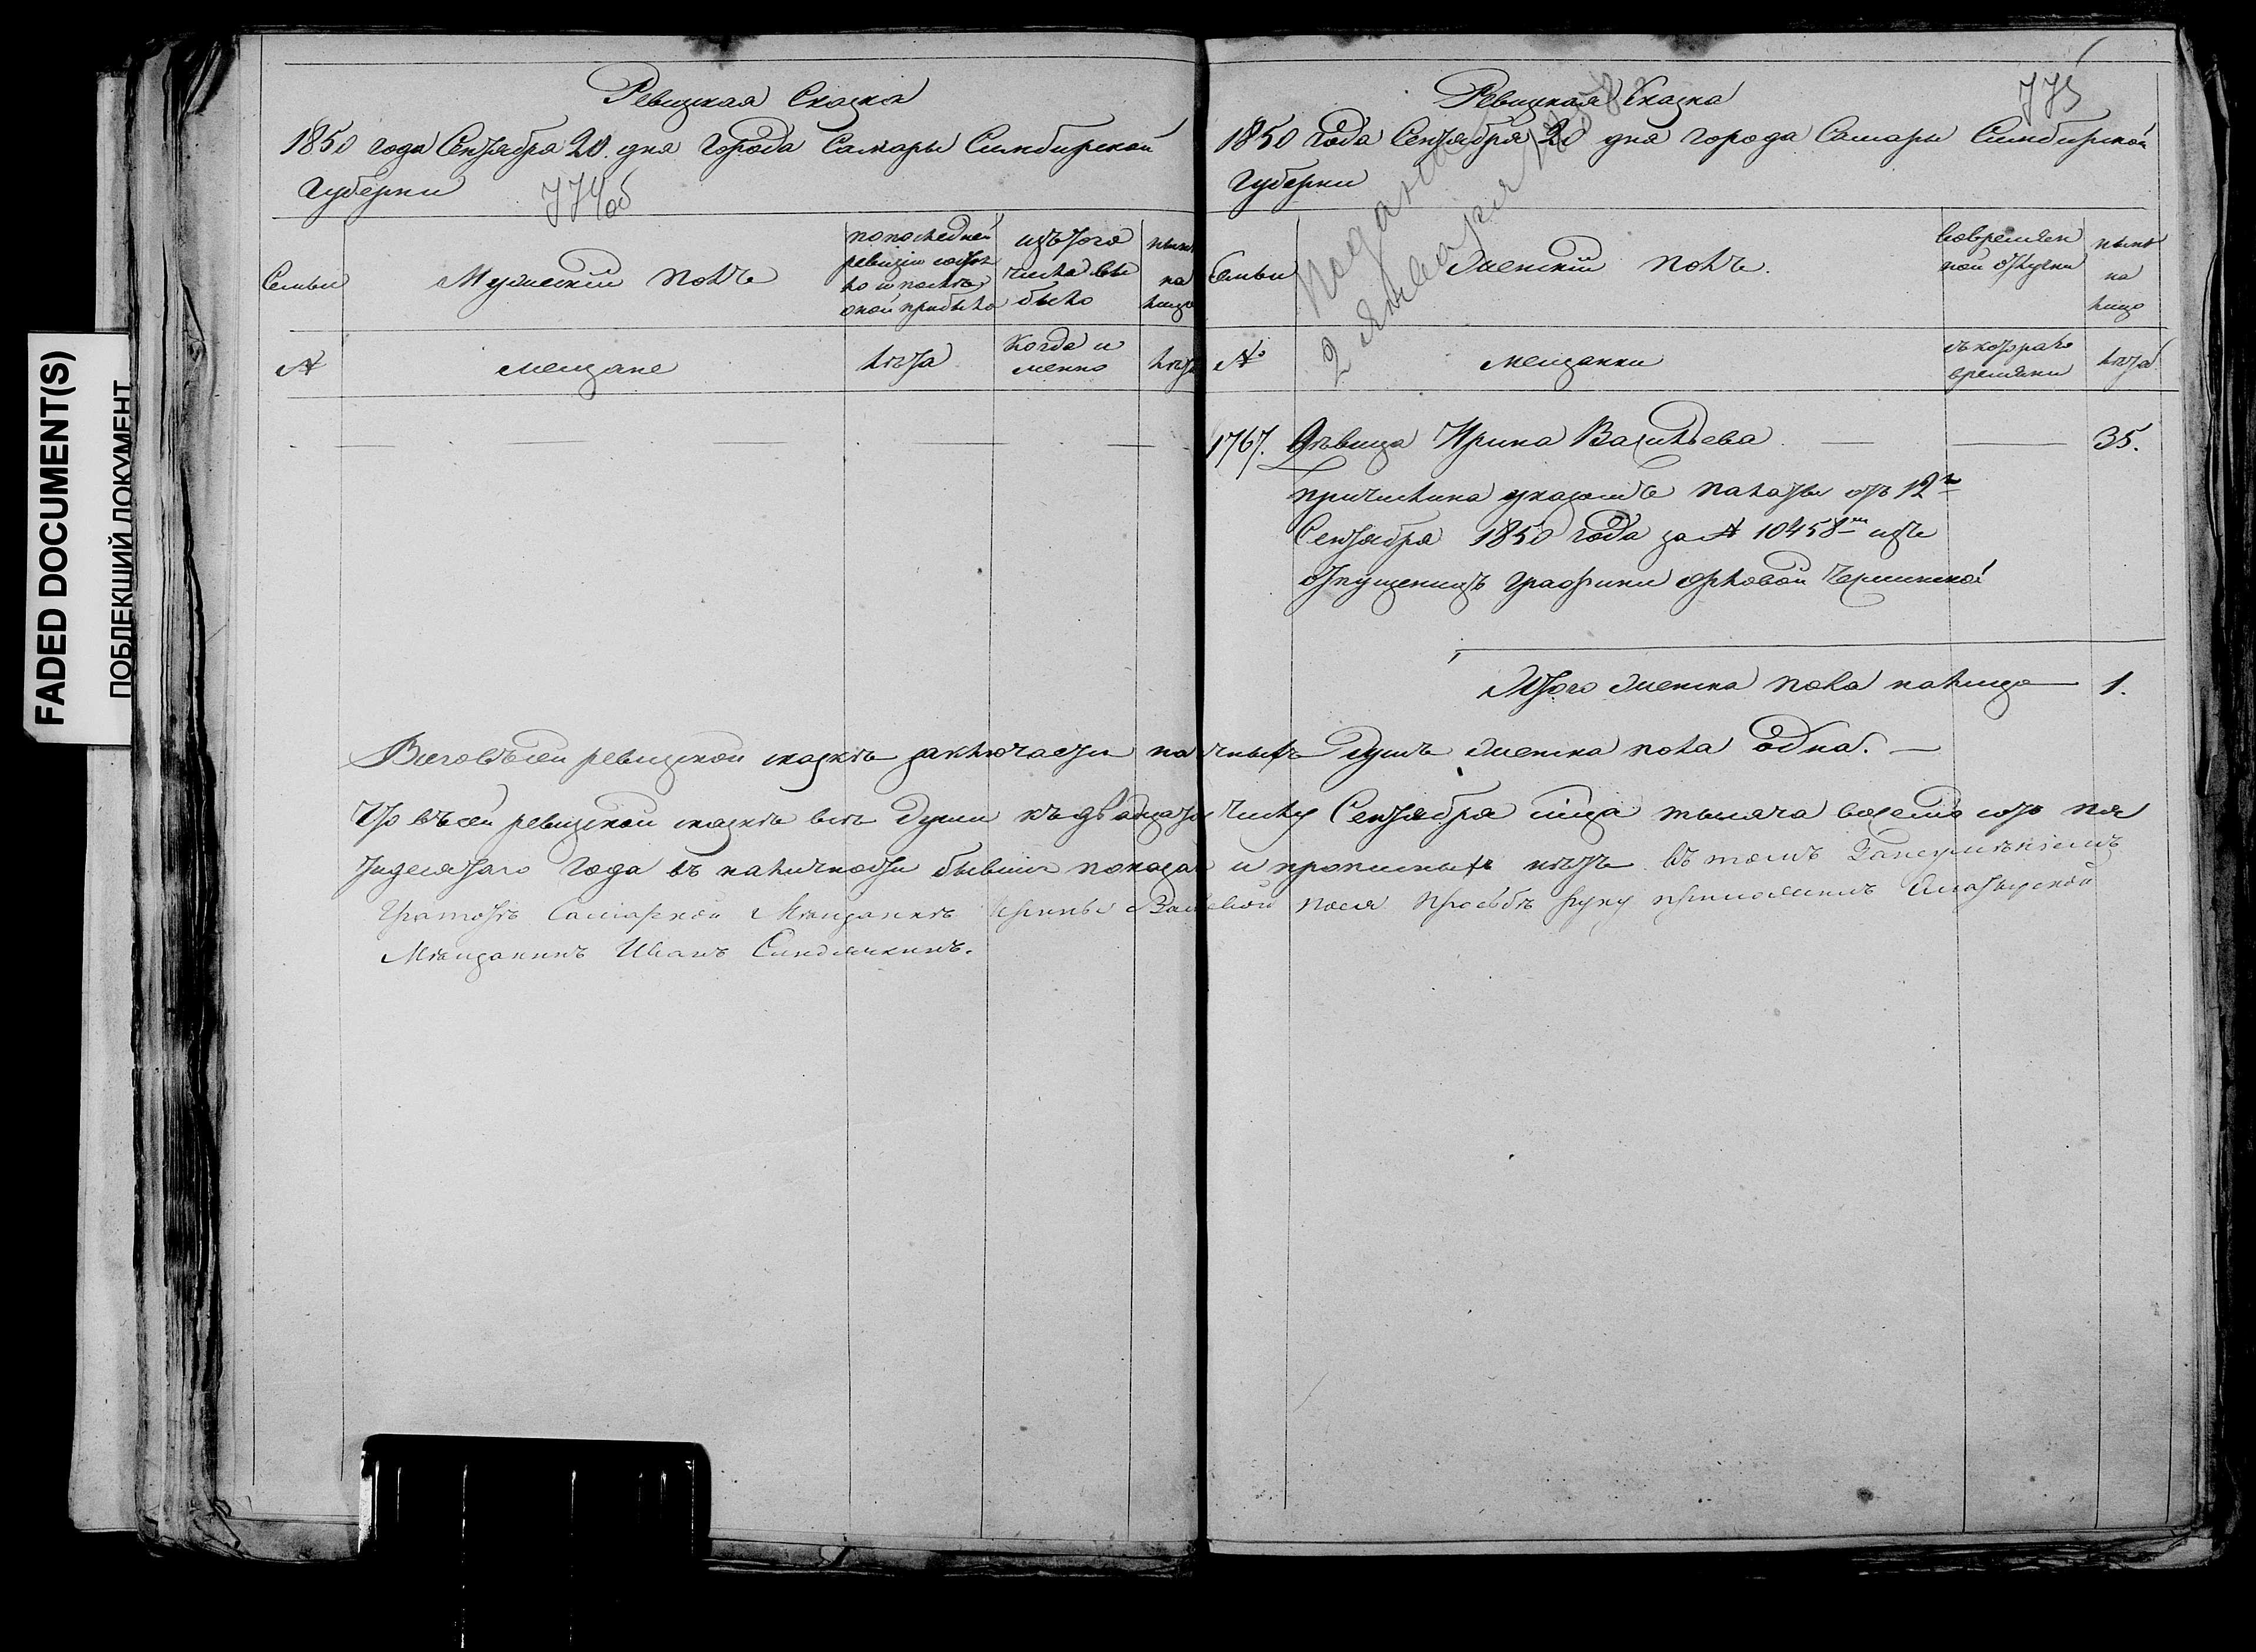 FADED DOCUMENT(S)
ПОБЛЕКШИЙ ДОКУМЕНТ
Ревизская Сказка
1850 года Сентября 20. дня Города Самары Симбирской
Губерни
774об
Семьи
Мужескій полъ
по последней
ревизіи состоя
ло и после
оной прибыло
изътого
числа вы
было
ныне
на
лицо
№
мещане
лета
Когда и
менно
лета
Ревизкая Сказка
775
1850 года Сентября 20 дня города Самары Симбирской
Губерни
Подана
2 Января
Семьи
Женскій полъ.
вовремян
ной отлучки
ныне
на
лицо
№
мещанки
съкотораго
времяни
лета
1767. Девица Ирина Васильева 35.
причислина указомъ палаты отъ 12го
Сентября 1850 года за № 10458м изъ
отпущеницъ графини орловой Чесминской
Итого женска пола налицо 1.
Всего въсей ревизской сказкѣ заключается наличныхъ душъ женска пола одна.
Что въсей ревизской сказкѣ всѣ души къдвадцатому числу Сентября мца тысяча восемь сотъ пя
тидесятаго года въ наличности бывшия показаны и прописныхъ нетъ въ томъ Занеумѣніемъ
Грамотѣ Самарской Мѣщанкѣ Ирины Васильевой поея Прозьбѣ руку приложилъ Алатырской
Мѣщанинъ Иванъ Синдячкинъ.